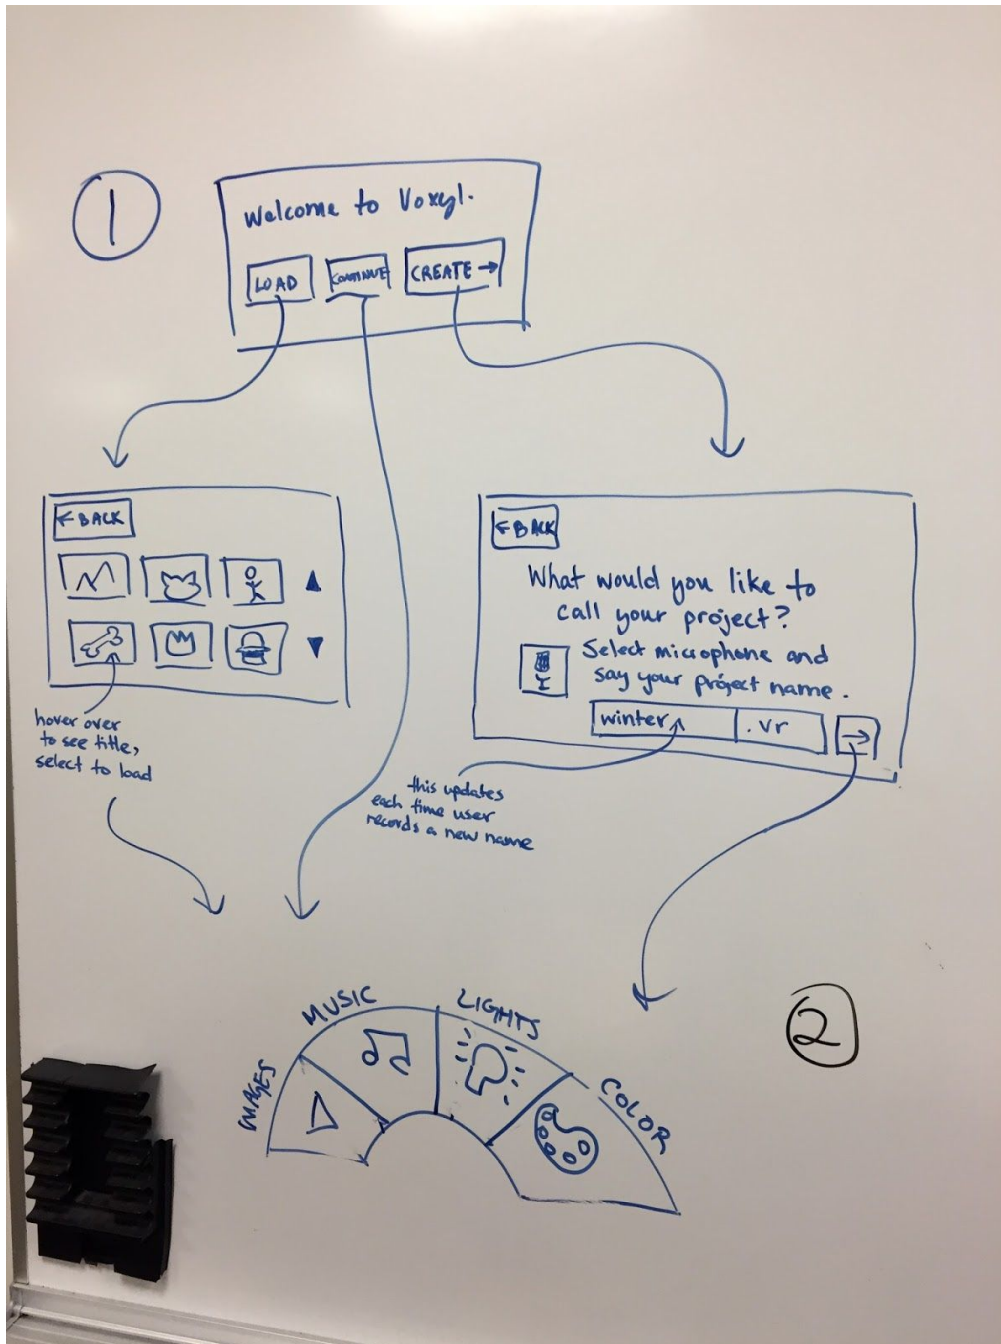 1
Welcome to Voxyl.
LOAD
CONTINUE
CREATE →
← BACK
hover over
to see title,
select to load
← BACK
What would you like to
call your project?
Select microphone and
say your project name.
winter
.vr
→
this updates
each time user
records a new name
2
IMAGES
MUSIC
LIGHTS
COLOR